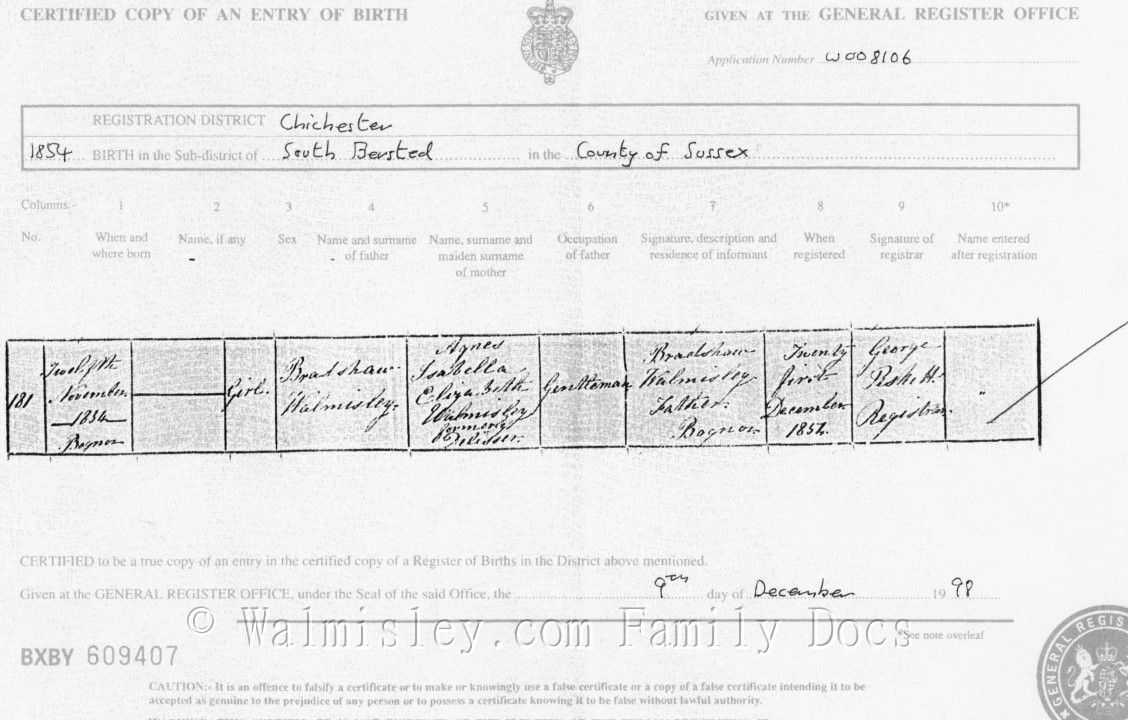 CERTIFIED COPY OF AN ENTRY OF BIRTH
GIVEN AT THE GENERAL REGISTER OFFICE
Application Number W008106
REGISTRATION DISTRICT Chichester
1854 BIRTH in the Sub-district of South Bersted in the County of Sussex
Columns:- 1 2 3 4 5 6 7 8 9 10*
No. When and where born Name, if any Sex Name and surname of father Name, surname and maiden surname of mother Occupation of father Signature, description and residence of informant When registered Signature of registrar Name entered after registration
181
Twelfth
November
1854
Bognor
Girl.
Bradshaw
Walmisley.
Agnes
Isabella
Elizabeth
Walmisley
formerly
Gentleman
Bradshaw
Walmisley.
Father.
Bognor
Twenty
first
December
1854.
George
Registrar.
CERTIFIED to be a true copy of an entry in the certified copy of a Register of Births in the District above mentioned.
Given at the GENERAL REGISTER OFFICE, under the Seal of the said Office, the 9th day of December 19 98
© Walmisley.com Family Docs
*See note overleaf
BXBY 609407
CAUTION:- It is an offence to falsify a certificate or to make or knowingly use a false certificate or a copy of a false certificate intending it to be
accepted as genuine to the prejudice of any person or to possess a certificate knowing it to be false without lawful authority.